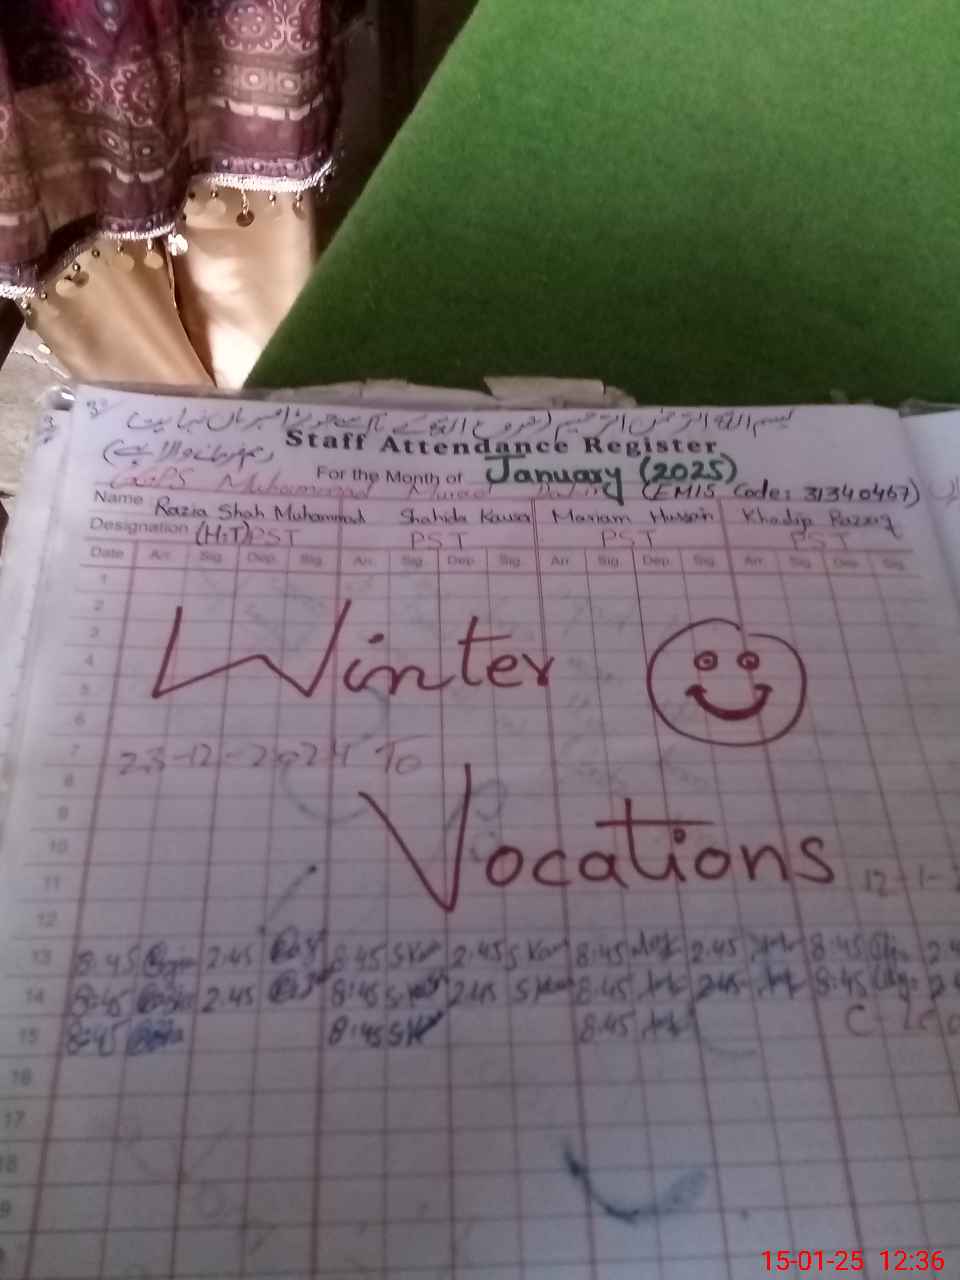 بسم اللہ الرحمٰن الرحیم (شروع اللہ کے نام سے جو بڑا مہربان نہایت
رحم فرمانے والا ہے)
Staff Attendance Register
For the Month of January (2025)
GGPS Muhammad Murad (EMIS Code: 31340467)
Name Razia Shah Muhammad Shahida Kausar Mariam Hussain Khadija Razzaq
Designation (H.T) PST PST PST PST
Date Arr. Sig. Dep. Sig. Arr. Sig. Dep. Sig. Arr. Sig. Dep. Sig. Arr. Sig. Dep. Sig.
1
2
3
Winter
4
5
6
7 23-12-2024 To
8
9
10
Vocations
11 12-1-
12
13 8:45 2:45 8:45 2:45 8:45 2:45 8:45
14 8:45 2:45 8:45 2:45 8:45 2:45 8:45
15 8:45 8:45 8:45
16
17
18
9
15-01-25 12:36